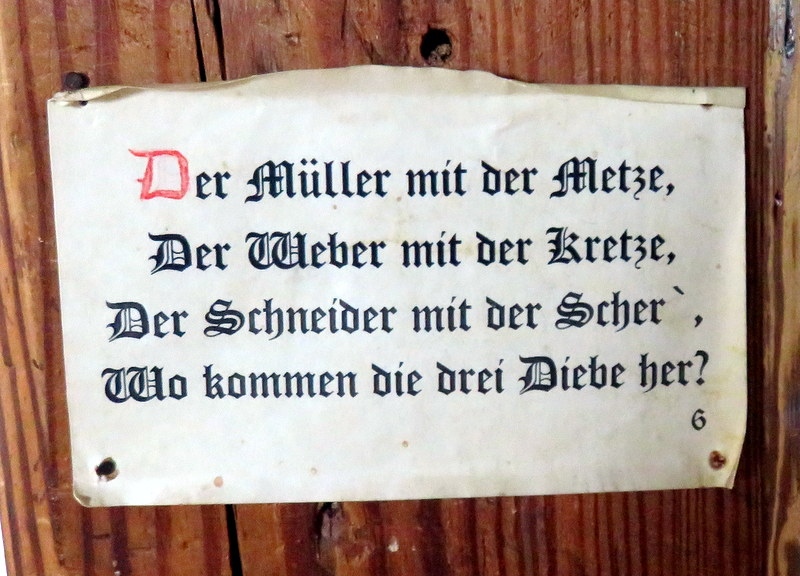 Der Müller mit der Metze,
Der Weber mit der Kretze,
Der Schneider mit der Scher`,
Wo kommen die drei Diebe her?
6